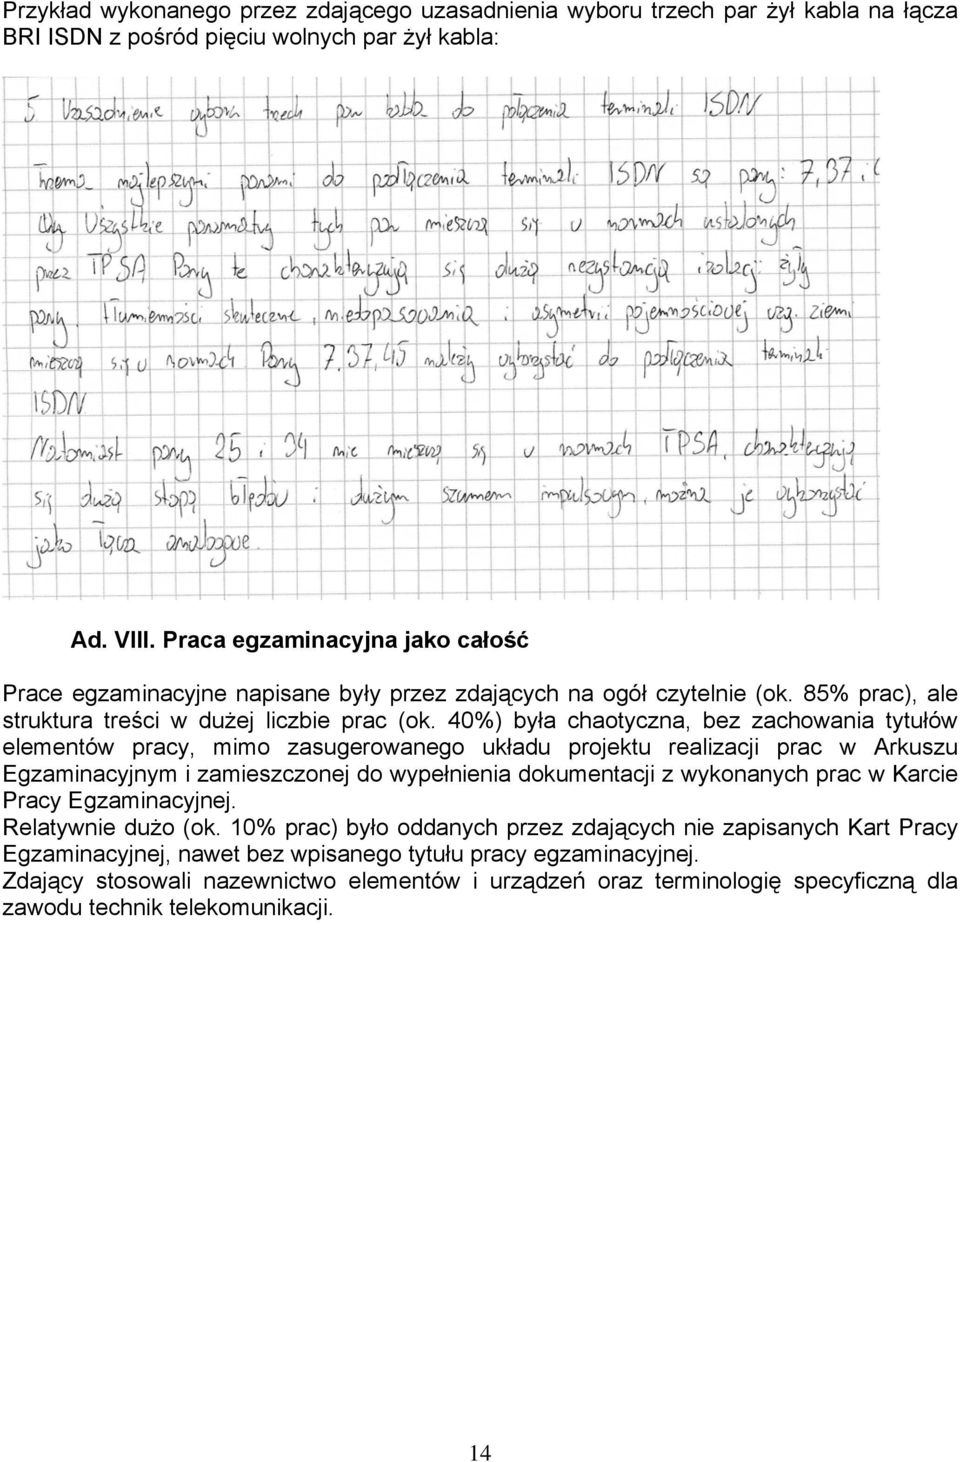 Przykład wykonanego przez zdającego uzasadnienia wyboru trzech par żył kabla na łącza
BRI ISDN z pośród pięciu wolnych par żył kabla:
5 Uzasadnienie wyboru trzech par kabla do połączenia terminali ISDN
Trzema najlepszymi parami do podłączenia terminali ISDN są pary: 7, 37 i
Wszystkie parametry tych par mieszczą się w normach ustalonych
przez TPSA Pary te charakteryzują się dużą rezystancją izolacji żyły
pary. Tłumienności skuteczne, niedopasowania i asymetrii pojemnościowej wzg. ziemi
mieszczą się w normach Pary 7, 37, 45 należy wykorzystać do podłączenia terminali
ISDN
Natomiast pary 25 i 34 nie mieszczą się w normach TPSA, charakteryzują
się dużą stopą błędów i dużym szumem impulsowym, można je wykorzystać
jako łącza analogowe.
Ad. VIII. Praca egzaminacyjna jako całość
Prace egzaminacyjne napisane były przez zdających na ogół czytelnie (ok. 85% prac), ale
struktura treści w dużej liczbie prac (ok. 40%) była chaotyczna, bez zachowania tytułów
elementów pracy, mimo zasugerowanego układu projektu realizacji prac w Arkuszu
Egzaminacyjnym i zamieszczonej do wypełnienia dokumentacji z wykonanych prac w Karcie
Pracy Egzaminacyjnej.
Relatywnie dużo (ok. 10% prac) było oddanych przez zdających nie zapisanych Kart Pracy
Egzaminacyjnej, nawet bez wpisanego tytułu pracy egzaminacyjnej.
Zdający stosowali nazewnictwo elementów i urządzeń oraz terminologię specyficzną dla
zawodu technik telekomunikacji.
14